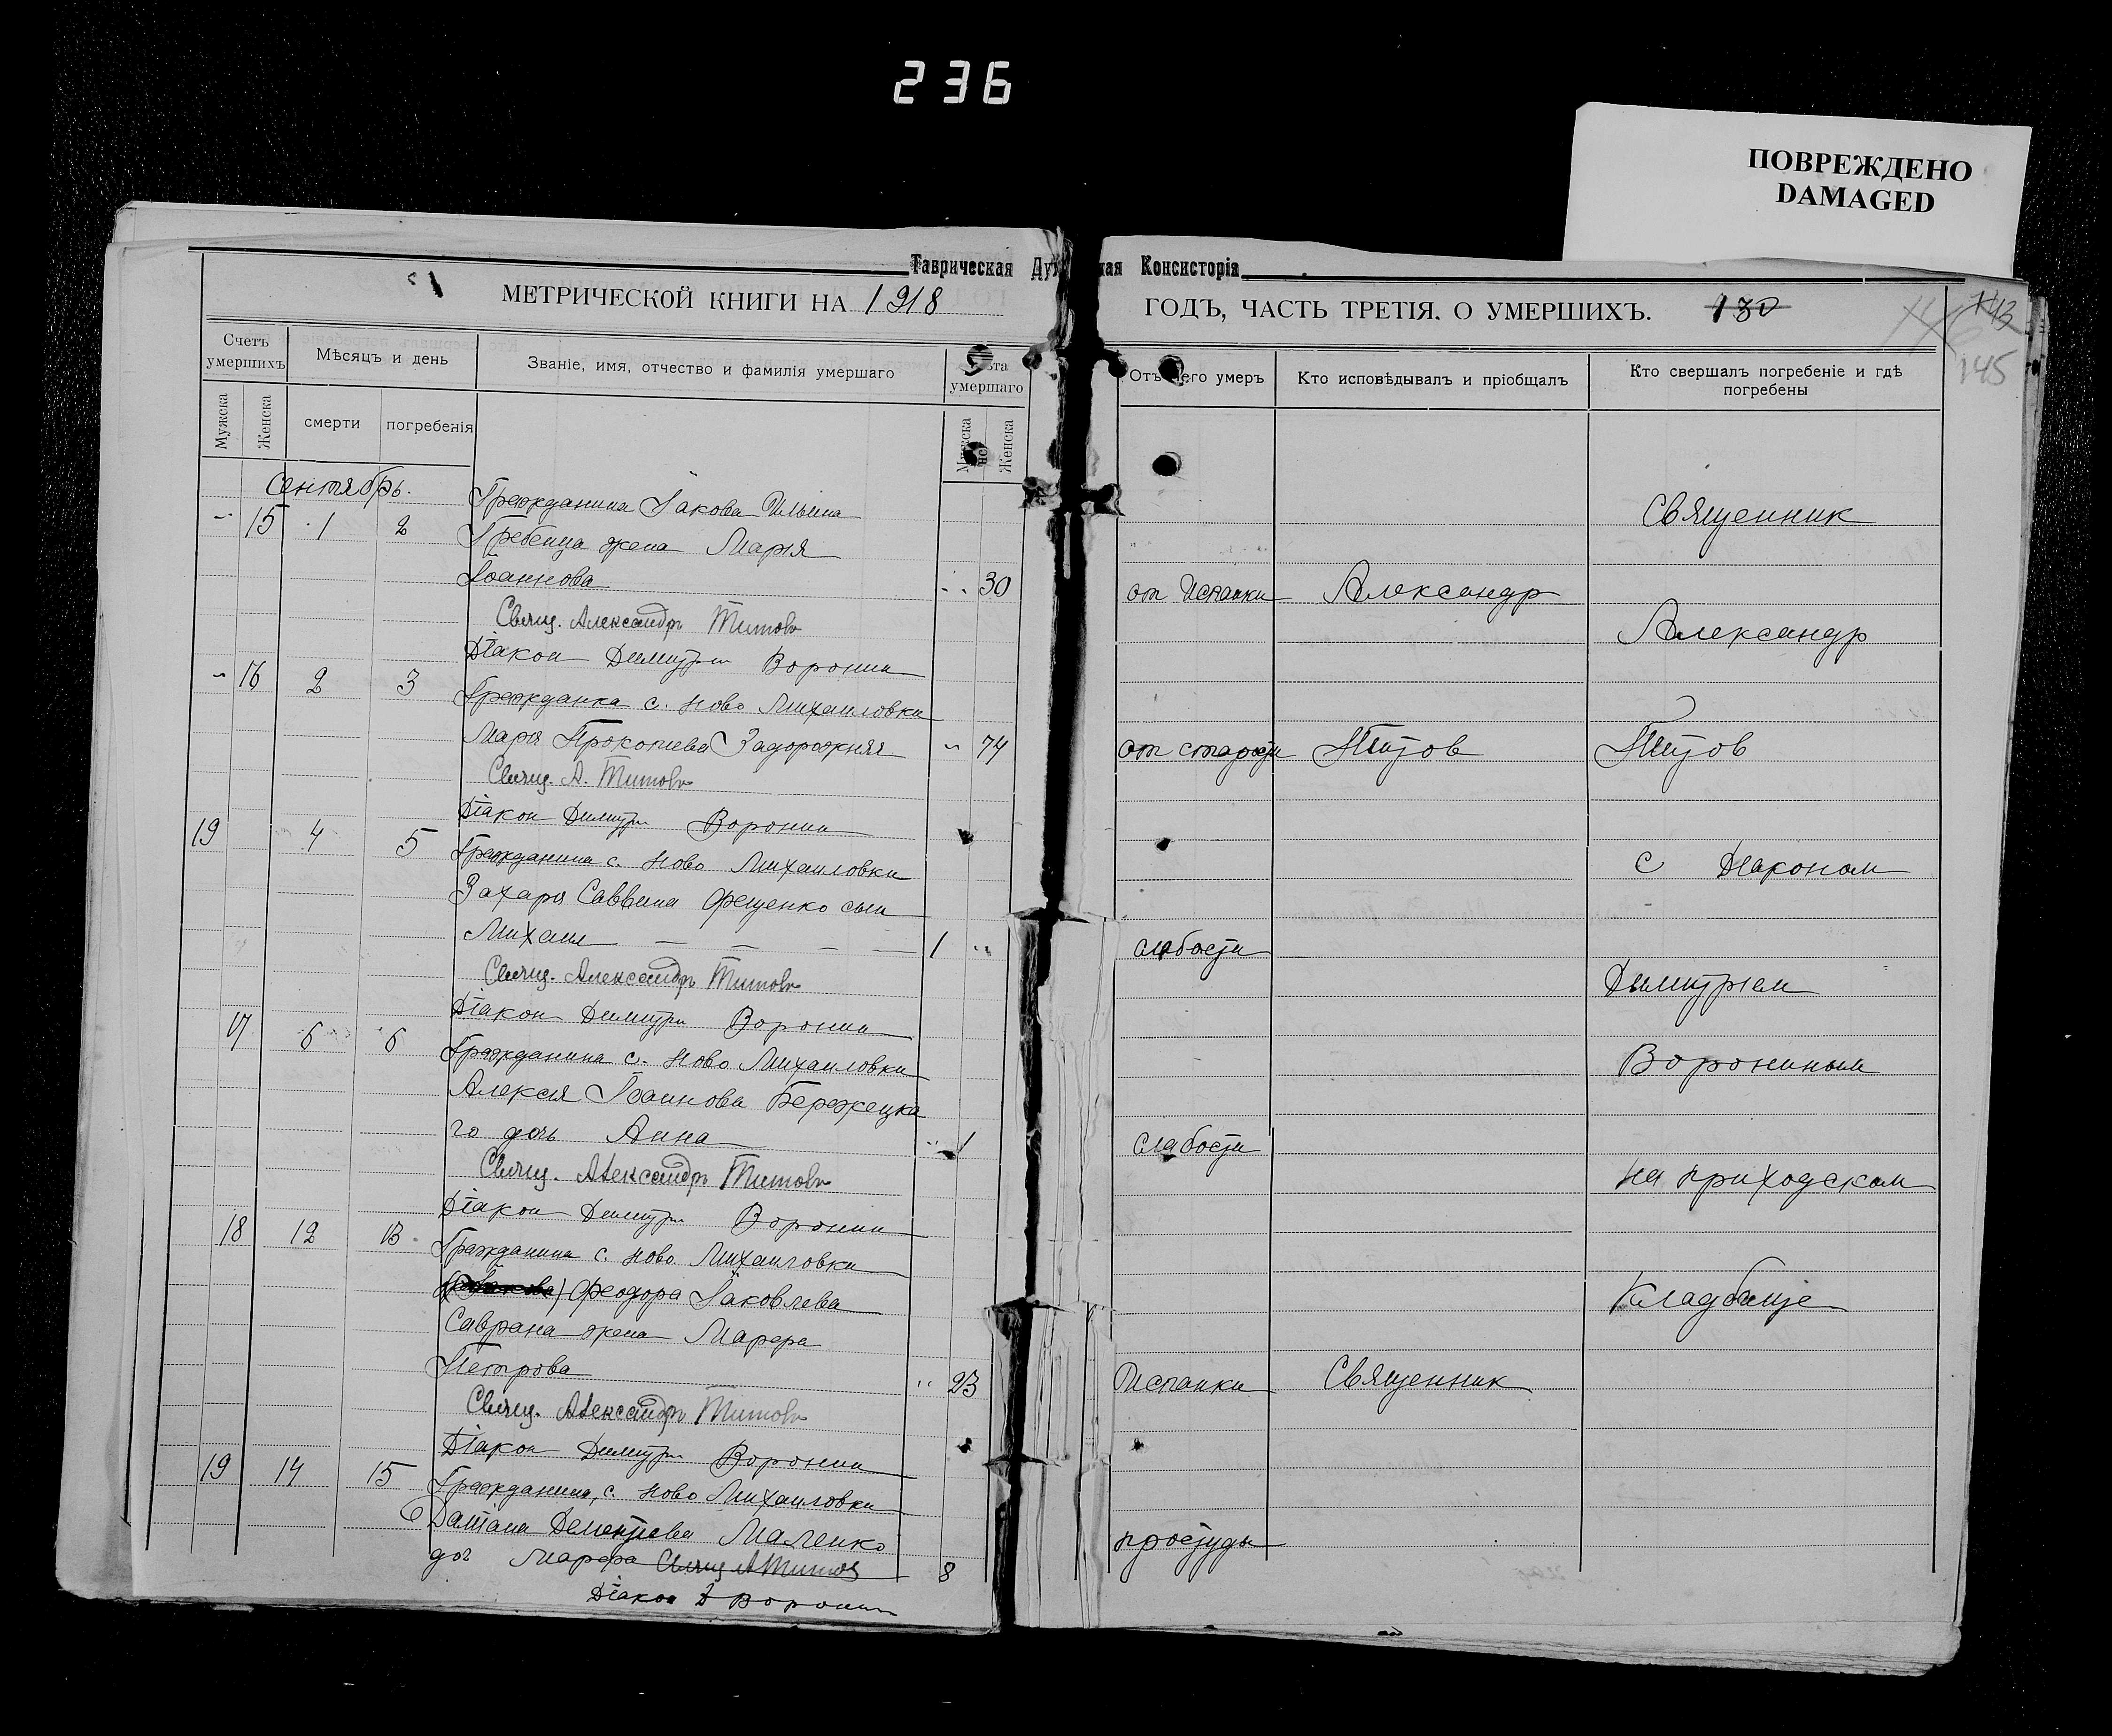 236
ПОВРЕЖДЕНО
DAMAGED
Таврическая Дух ная Консисторія
МЕТРИЧЕСКОЙ КНИГИ НА 1918
ГОДЪ, ЧАСТЬ ТРЕТІЯ. О УМЕРШИХЪ. 130
143
146
145
Счетъ умершихъ
Мѣсяцъ и день
Званіе, имя, отчество и фамилія умершаго
умершаго
Отъ чего умеръ
Кто исповѣдывалъ и пріобщалъ
Кто свершалъ погребеніе и гдѣ погребены
Мужска
Женска
смерти
погребенія
Мужска
Женска
Сентябрь.
Гражданина Іакова Ильина
Священник
15 1 2
Гребенца жена Марія
Іоаннова 30 от Испанки Александр
Свящ. Александръ Титовъ
Александр
Діакон Димитри Воронин
16 2 3
Гражданка с. Ново Михаиловки
Марія Прокопиева Задорожняя 74 от старости Титов Титов
Свящ. А. Титовъ
Діакон Димитри Воронин
19 4 5
Гражданина с. Ново Михаиловки
с Діаконом
Захарія Саввина Фещенко сын
Михаил 1 слабости
Свящ. Александръ Титовъ
Димитрием
Діакон Димитри Воронин
17 6 6
Гражданина с. Ново Михаиловки
Ворониным
Алексія Іоаннова Бережецка
го дочь Анна 1 слабости
Свящ. Александръ Титовъ
на приходском
Діакон Димитри Воронин
18 12 13
Гражданина с. Ново Михаиловки
Феодора Іаковлева
Кладбище
Саврана жена Марфа
Петрова 23 Испанки Священник
Свящ. Александръ Титовъ
Діакон Димитри Воронин
19 14 15
Гражданина с. Ново Михаиловки
Даміана Дементиева Маленко простуды
доч Марфа Свящ А Титов 8
Діакон Д Воронин